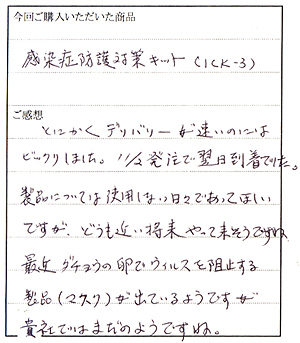 今回ご購入いただいた商品
感染症防護対策キット(ICK-3)
ご感想
とにかくデリバリーが速いのには
ビックリしました。11/2発注で翌日到着でした。
製品については使用しない日々であってほしい
ですが、どうも近い将来やって来そうですね
最近ダチョウの卵でウィルスを阻止する
製品(マスク)が出ているようですが
貴社ではまだのようですね。